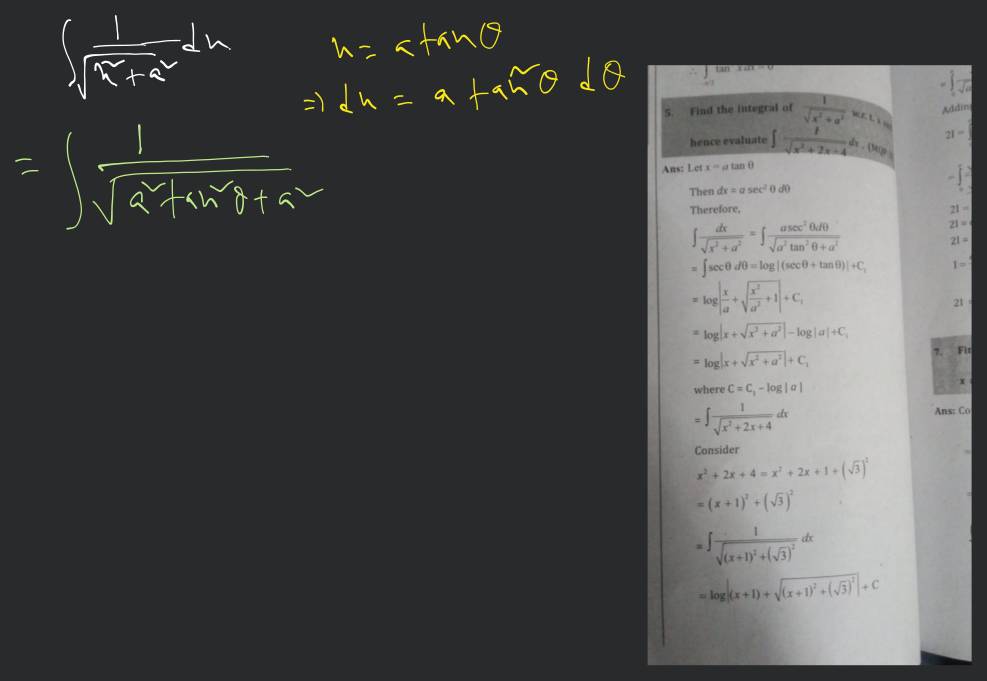 ∫ 1/√(x² + a²) dx
x = a tanθ
⇒ dx = a tan²θ dθ
= ∫ 1/√(a² tan²θ + a²)
5. Find the integral of 1/√(x² + a²) w.r.t. x
hence evaluate ∫ 1/√(x² + 2x + 4) dx.
Ans: Let x = a tan θ
Then dx = a sec² θ dθ
Therefore,
∫ dx/√(x² + a²) = ∫ a sec² θdθ/√(a² tan² θ + a²)
= ∫ sec θ dθ = log|(sec θ + tan θ)| + C₁
= log|x/a + √(x²/a² + 1)| + C₁
= log|x + √(x² + a²)| − log|a| + C₁
= log|x + √(x² + a²)| + C₁
where C = C₁ − log|a|
= ∫ 1/√(x² + 2x + 4) dx
Consider
x² + 2x + 4 = x² + 2x + 1 + (√3)²
= (x + 1)² + (√3)²
= ∫ 1/√((x+1)² + (√3)²) dx
= log|(x + 1) + √((x + 1)² + (√3)²)| + C
Adding
21 =
21 =
21 =
21 =
1 =
21 =
7.
x
Ans: Co